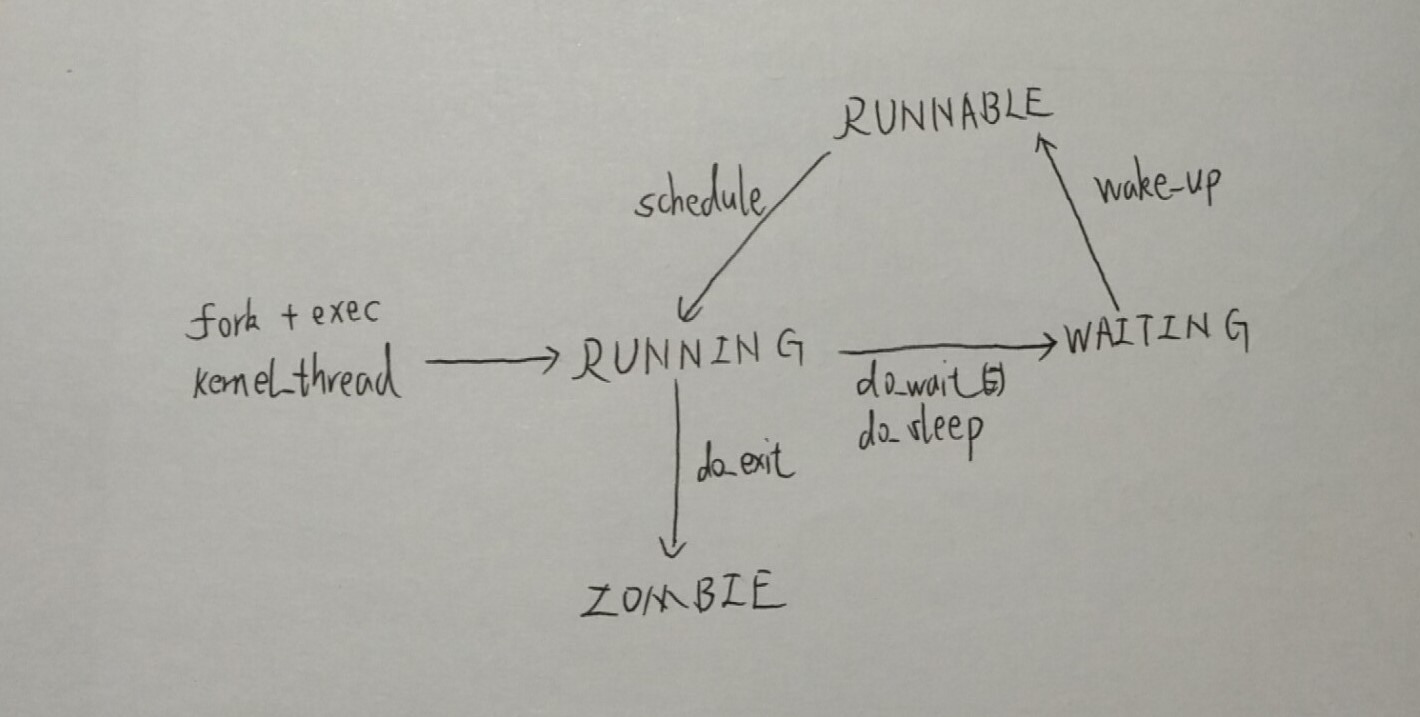 RUNNABLE
schedule
wake-up
fork + exec
kernel_thread
RUNNING
WAITING
do_wait
do_sleep
do_exit
ZOMBIE